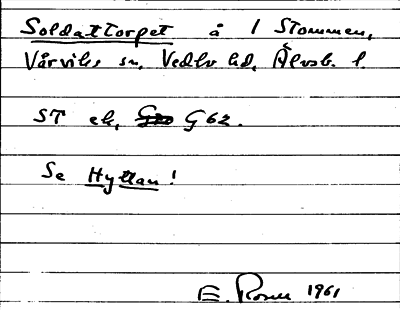 Soldattorpet å 1 Stommen,
Vårviks sn, Vedbo hd, Älvsb. l.
ST ek, G 62.
Se Hyttan!
E. Rosen 1961